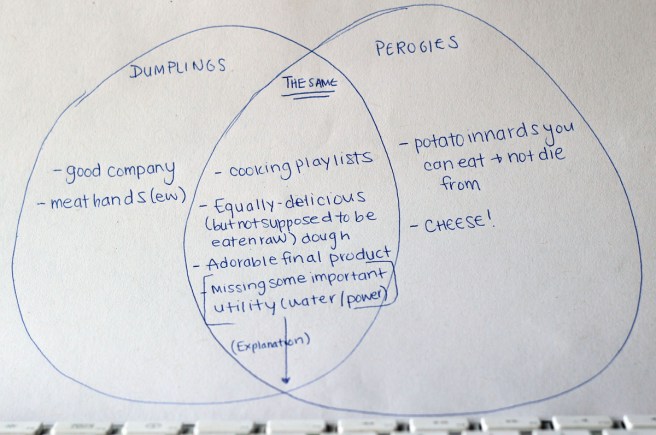 DUMPLINGS
PEROGIES
THE SAME
- good company
- meat hands (ew)
- cooking playlists
- Equally-delicious
(but not supposed to be
eaten raw) dough
- Adorable final product
- Missing some important
utility (water/power)
(Explanation)
- potato innards you
can eat + not die
from
- CHEESE!